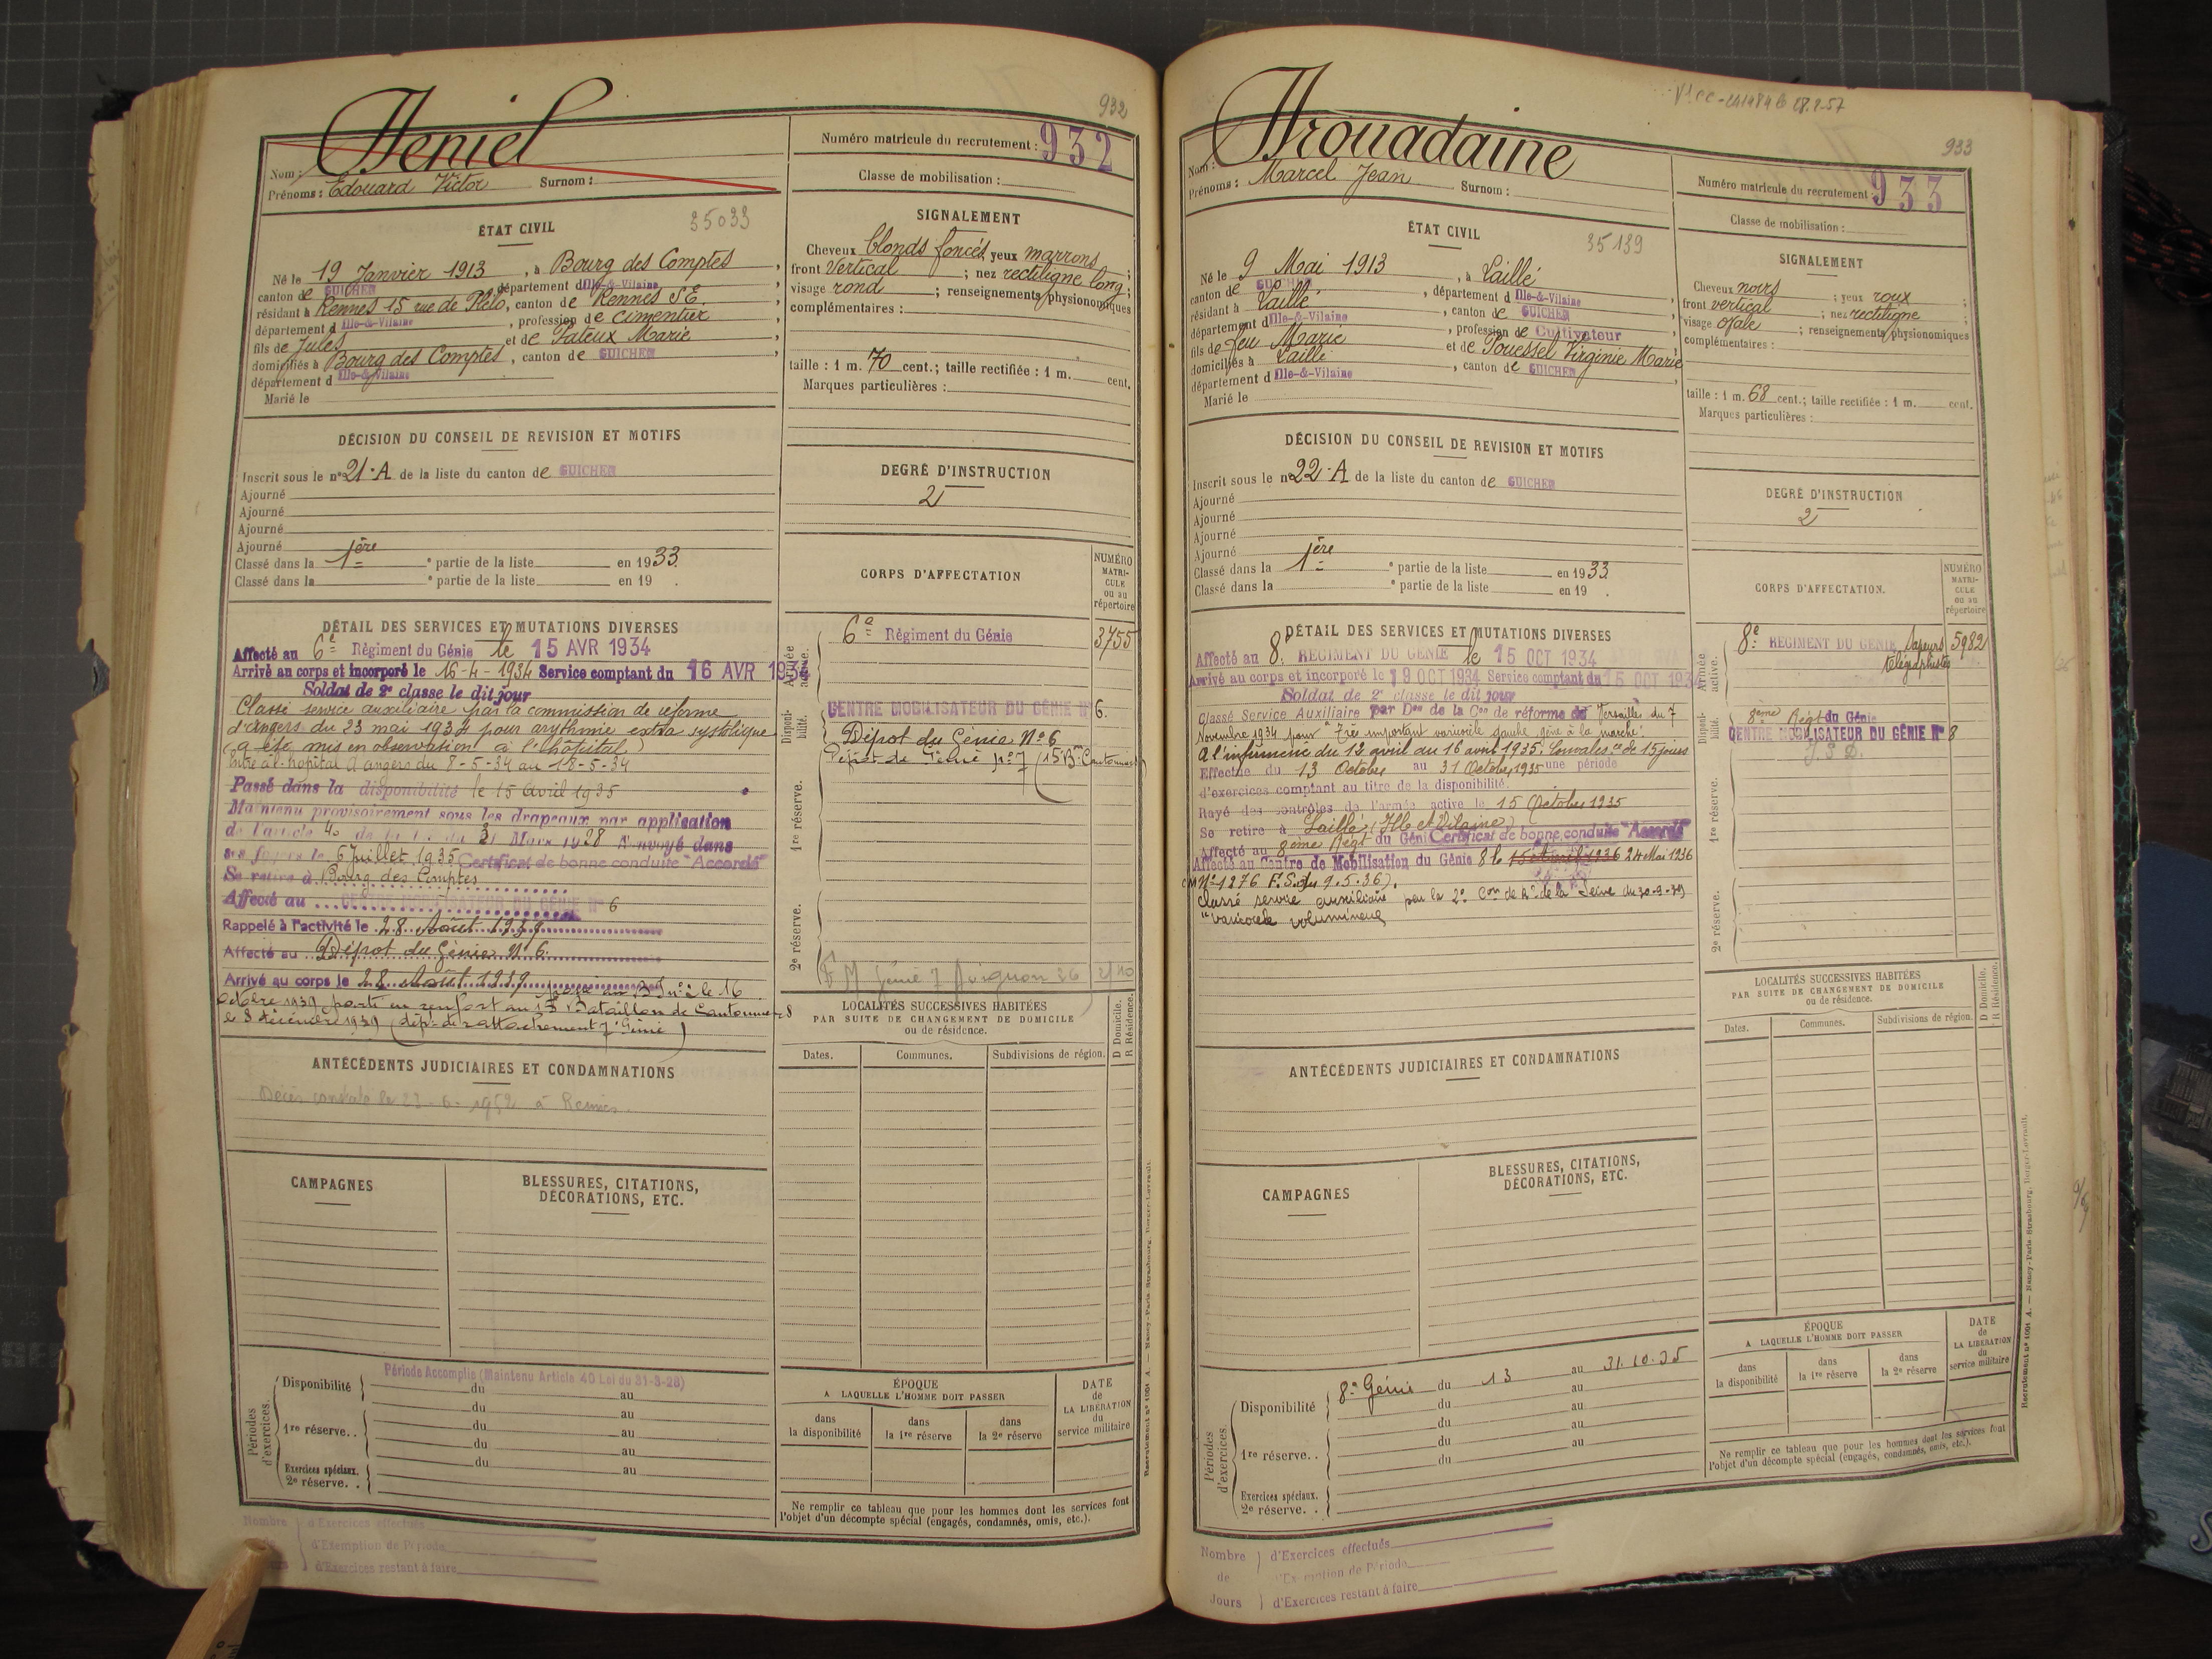 932
Heniel
Nom :
Prénoms : Edouard Victor Surnom :
Numéro matricule du recrutement : 932
Classe de mobilisation :
ÉTAT CIVIL
35033
Né le 19 Janvier 1913, à Bourg des Comptes,
canton de GUICHEN, département d Ille-&-Vilaine
résidant à Rennes 15 rue de Plélo, canton de Rennes S.E.
département d Ille-&-Vilaine, profession de cimentier
fils de Jules et de Pateux Marie
domiciliés à Bourg des Comptes, canton de GUICHEN,
département d Ille-&-Vilaine
Marié le
SIGNALEMENT
Cheveux blonds foncés, yeux marrons ;
front vertical ; nez rectiligne long ;
visage rond ; renseignements physionomiques
complémentaires :
taille : 1 m. 70 cent.; taille rectifiée : 1 m. cent.
Marques particulières :
DÉCISION DU CONSEIL DE REVISION ET MOTIFS
Inscrit sous le n° 21.A de la liste du canton de GUICHEN
Ajourné
Ajourné
Ajourné
Ajourné
Classé dans la 1ère e partie de la liste en 1933.
Classé dans la e partie de la liste en 19 .
DEGRÉ D'INSTRUCTION
2
CORPS D'AFFECTATION
NUMÉRO
MATRI-
CULE
ou au
répertoire
Armée active.
6e Régiment du Génie 3755
Disponibilité.
CENTRE MOBILISATEUR DU GÉNIE N° 6.
Dépot du Génie N° 6
Dépôt de Génie n° 7 (15 Bn Cantonniers)
1re réserve.
2e réserve.
Génie 7 Avignon 26
DÉTAIL DES SERVICES ET MUTATIONS DIVERSES
Affecté au 6e Régiment du Génie le 15 AVR 1934
Arrivé au corps et incorporé le 16-4-1934 Service comptant du 16 AVR 1934
Soldat de 2e classe le dit jour
Classé service auxiliaire par la commission de réforme
d'Angers du 23 mai 1934 pour arythmie extra systolique
(a été mis en observation à l'hôpital)
Entré à l'hopital d'angers du 8-5-34 au 18-5-34
Passé dans la disponibilité le 15 Avril 1935
Maintenu provisoirement sous les drapeaux par application
de l'article 40 de la loi du 31 Mars 1928 Renvoyé dans
ses foyers le 6 Juillet 1935 Certificat de bonne conduite "Accordé"
Se retire à Bourg des Comptes
Affecté au CENTRE MOBILISATEUR DU GÉNIE N° 6
Rappelé à l'activité le 28 Août 1939
Affecté au Dépot du Génie N° 6.
Arrivé au corps le 28 Août 1939 le 16
octobre 1939 parti en renfort au 15 Bataillon de Cantonniers
le 8 décembre 1939 (dépt de rattachement 7e Génie)
LOCALITÉS SUCCESSIVES HABITÉES
PAR SUITE DE CHANGEMENT DE DOMICILE
ou de résidence.
D Domicile.
R Résidence.
Dates. Communes. Subdivisions de région.
ANTÉCÉDENTS JUDICIAIRES ET CONDAMNATIONS
Décès constaté le 22-6-1952 à Rennes.
CAMPAGNES
BLESSURES, CITATIONS,
DÉCORATIONS, ETC.
Périodes d'exercices.
Période Accomplie (Maintenu Article 40 Loi du 31-3-28)
Disponibilité du au
du au
1re réserve. . du au
du au
Exercices spéciaux. du au
2e réserve. .
ÉPOQUE
A LAQUELLE L'HOMME DOIT PASSER
dans la disponibilité
dans la 1re réserve
dans la 2e réserve
DATE
de
LA LIBÉRATION
du
service militaire
Ne remplir ce tableau que pour les hommes dont les services font
l'objet d'un décompte spécial (engagés, condamnés, omis, etc.).
Nombre d'Exercices effectués
d'Exemption de Période
d'Exercices restant à faire
Recrutement n° 1001 A. — Nancy-Paris-Strasbourg, Berger-Levrault.
933
Hrouadaine
Nom :
Prénoms : Marcel Jean Surnom :
Numéro matricule du recrutement : 933
Classe de mobilisation :
ÉTAT CIVIL
35139
Né le 9 Mai 1913, à Laillé
canton de GUICHEN, département d Ille-&-Vilaine
résidant à Laillé, canton de GUICHEN
département d Ille-&-Vilaine, profession de Cultivateur
fils de feu Marie et de Poussel Virginie Marie
domiciliés à Laillé, canton de GUICHEN
département d Ille-&-Vilaine
Marié le
SIGNALEMENT
Cheveux noirs ; yeux roux ;
front vertical ; nez rectiligne ;
visage ovale ; renseignements physionomiques
complémentaires :
taille : 1 m. 68 cent.; taille rectifiée : 1 m. cent.
Marques particulières :
DÉCISION DU CONSEIL DE REVISION ET MOTIFS
Inscrit sous le n° 22.A de la liste du canton de GUICHEN
Ajourné
Ajourné
Ajourné
Ajourné
Classé dans la 1ère e partie de la liste en 1933.
Classé dans la e partie de la liste en 19 .
DEGRÉ D'INSTRUCTION
2
CORPS D'AFFECTATION.
NUMÉRO
MATRI-
CULE
ou au
répertoire
Armée active.
8e REGIMENT DU GENIE Sapeurs 5982
télégraphistes
Disponibilité.
8ème Régt du Génie
CENTRE MOBILISATEUR DU GÉNIE N° 8
1re réserve.
2e réserve.
DÉTAIL DES SERVICES ET MUTATIONS DIVERSES
Affecté au 8e REGIMENT DU GENIE le 15 OCT 1934
Arrivé au corps et incorporé le 19 OCT 1934 Service comptant du 15 OCT 1934
Soldat de 2e classe le dit jour
Classé Service Auxiliaire par Don de la Con de réforme de Versailles du 7
Novembre 1934 pour "Très important varicocèle gauche gêne à la marche"
A l'infirmerie du 12 avril au 16 avril 1935. Convalesce de 15 jours
Effectue du 13 Octobre au 31 Octobre 1935 une période
d'exercices comptant au titre de la disponibilité.
Rayé des contrôles de l'armée active le 15 Octobre 1935
Se retire à Laillé (Ille et Vilaine)
Affecté au 8ème Régt du Génie Certificat de bonne conduite "Accordé"
Affecté au Centre de Mobilisation du Génie 8 le 15 Avril 1936 24 Mai 1936
(M N° 1276 F.S. du 9.5.36).
Classé service auxiliaire par la 2e Con de Re de la Seine du 30-9-39
"varicocèle volumineux
LOCALITÉS SUCCESSIVES HABITÉES
PAR SUITE DE CHANGEMENT DE DOMICILE
ou de résidence.
D Domicile.
R Résidence.
Dates. Communes. Subdivisions de région.
ANTÉCÉDENTS JUDICIAIRES ET CONDAMNATIONS
CAMPAGNES
BLESSURES, CITATIONS,
DÉCORATIONS, ETC.
Périodes d'exercices.
Disponibilité 8e Génie du 13 au 31.10.35
du au
du au
1re réserve. . du au
du au
Exercices spéciaux.
2e réserve. .
ÉPOQUE
A LAQUELLE L'HOMME DOIT PASSER
dans la disponibilité
dans la 1re réserve
dans la 2e réserve
DATE
de
LA LIBÉRATION
du
service militaire
Ne remplir ce tableau que pour les hommes dont les services font
l'objet d'un décompte spécial (engagés, condamnés, omis, etc.).
Nombre d'Exercices effectués
de d'Exemption de Période
Jours d'Exercices restant à faire
Recrutement n° 1001 A. — Nancy-Paris-Strasbourg, Berger-Levrault.